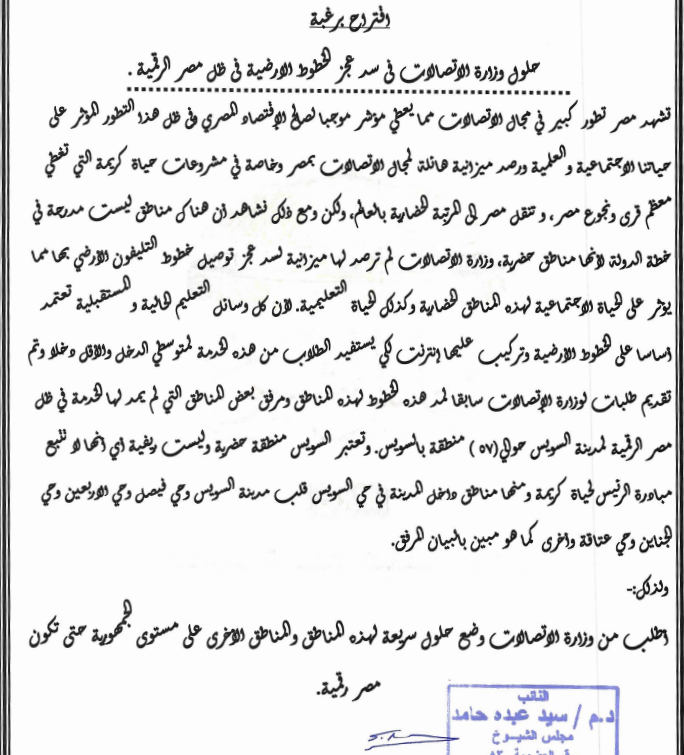 اقتراح برغبة
حلول وزارة الاتصالات فى سد عجز الخطوط الارضية فى ظل مصر الرقمية .
تشهد مصر تطور كبير في مجال الاتصالات مما يعطي مؤشر موجبا لصالح الإقتصاد المصري وفى ظل هذا التطور المؤثر على
حياتنا الاجتماعية والعلمية ورصد ميزانية هائلة لمجال الاتصالات بمصر وخاصة في مشروعات حياة كريمة التي تغطي
معظم قرى ونجوع مصر، و تنقل مصر الى المرتبة الحضارية بالعالم، ولكن ومع ذلك نشاهد أن هناك مناطق ليست مدرجة في
خطة الدولة لأنها مناطق حضرية، وزارة الاتصالات لم ترصد لها ميزانية لسد عجز توصيل خطوط التليفون الأرضي بها مما
يؤثر على الحياة الاجتماعية لهذه المناطق الحضارية وكذلك الحياة التعليمية. لأن كل وسائل التعليم الحالية و المستقبلية تعتمد
أساسا على الخطوط الأرضية وتركيب عليها إنترنت لكي يستفيد الطلاب من هذه الخدمة لمتوسطي الدخل والأقل دخلا وتم
تقديم طلبات لوزارة الإتصالات سابقا لمد هذه الخطوط لهذه المناطق ومرفق بعض المناطق التي لم يمد لها الخدمة في ظل
مصر الرقمية لمدينة السويس حوالي (٥٧) منطقة بالسويس. وتعتبر السويس منطقة حضرية وليست ريفية أي أنها لا تتبع
مبادرة الرئيس لحياة كريمة ومنها مناطق داخل المدينة في حي السويس قلب مدينة السويس وحي فيصل وحي الاربعين وحي
الجناين وحي عتاقة وأخرى كما هو مبين بالبيان المرفق.
ولذلك:-
أطلب من وزارة الاتصالات وضع حلول سريعة لهذه المناطق والمناطق الأخرى على مستوى الجمهورية حتى تكون
مصر رقمية.
النائب
د.م / سيد عبده حامد
مجلس الشيوخ